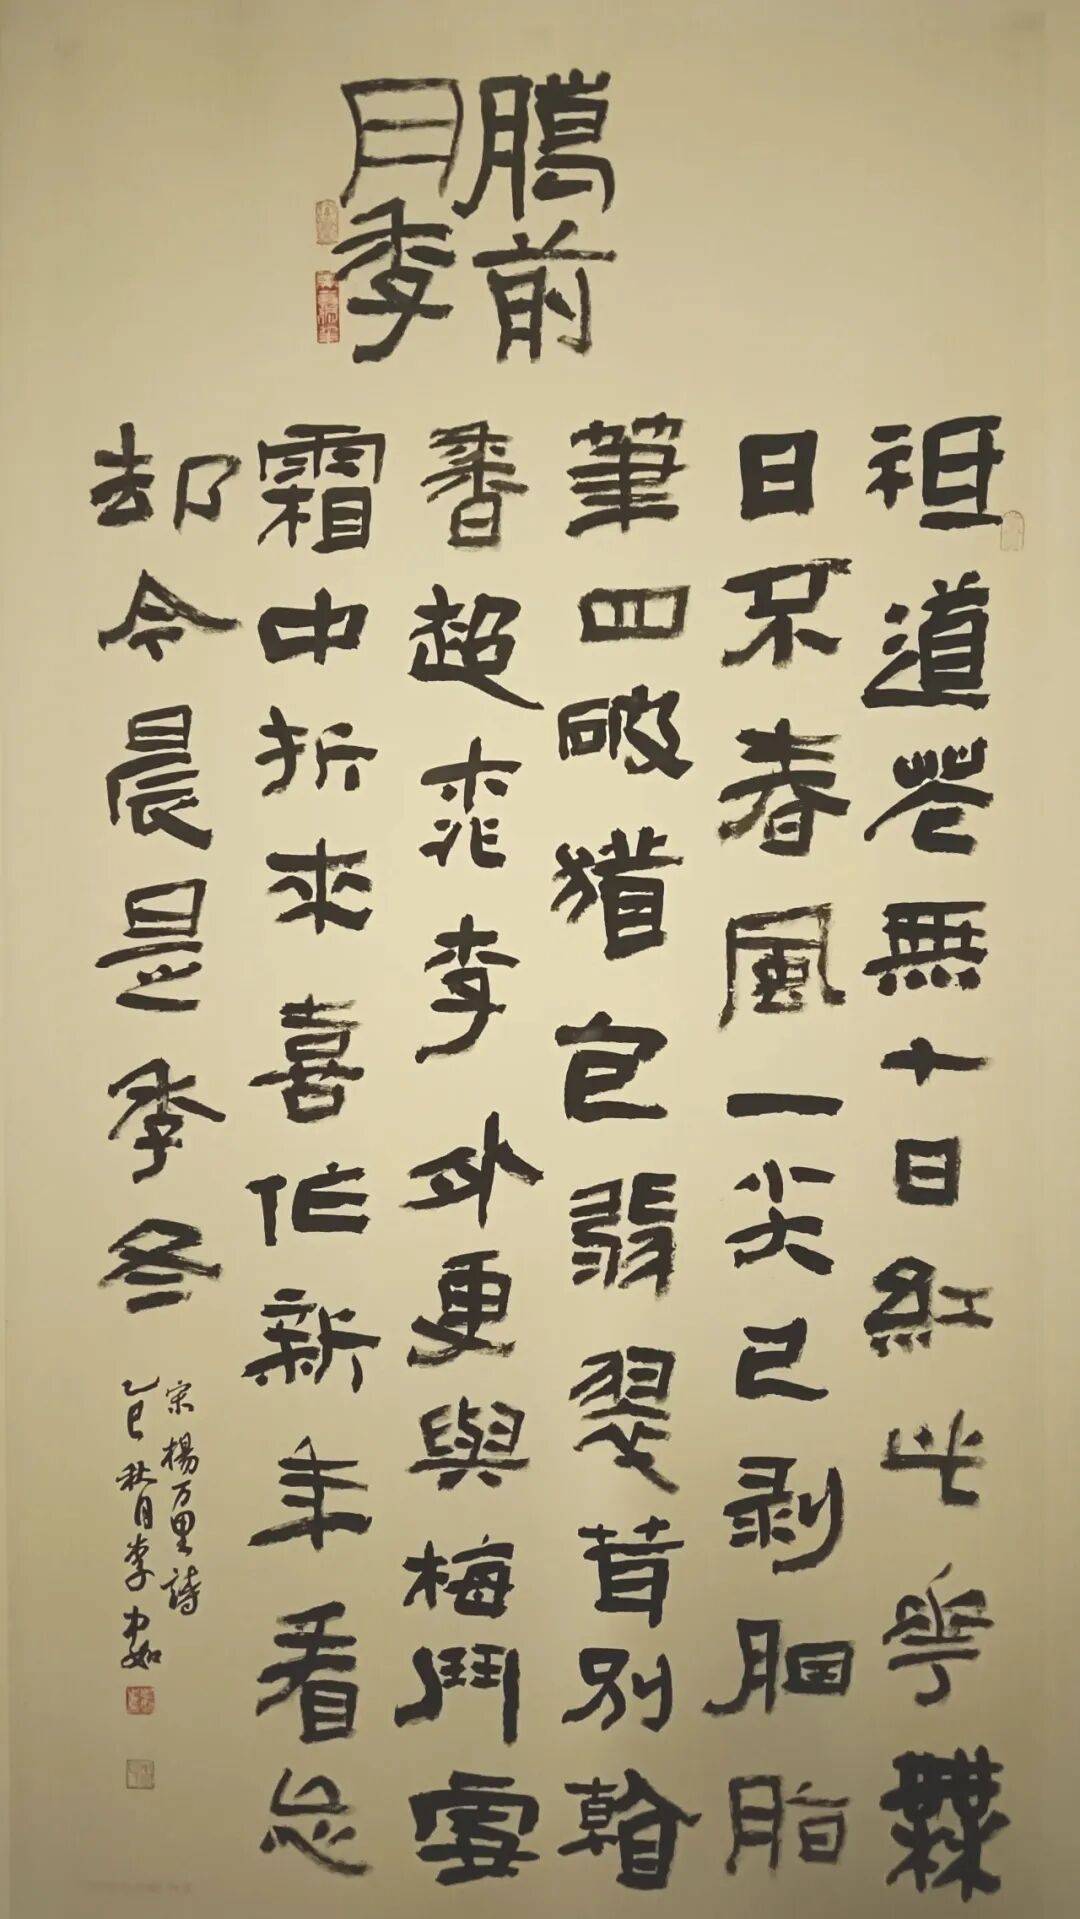 臈前
月季
祗道花無十日紅此華橆
日不春風一尖已剥胭脂
筆四破猶包翡翠茸别
香超桃李外更與梅鬥雪
霜中折來喜作新年看忘
却今晨是季冬
宋楊万里詩
乙巳秋月李